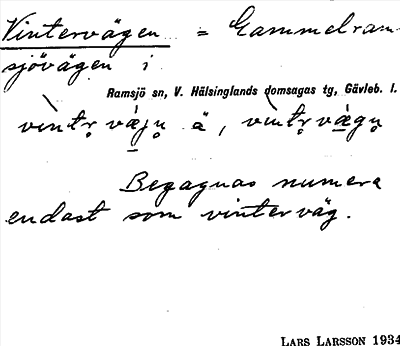 Vintervägen = Gammelram-
sjövägen i
Ramsjö sn, V. Hälsinglands domsagas tg, Gävleb. l.
vìntr̥ vä̀ju̥ ä, vìntr̥ vä̀gu̥
Begagnas numera
endast som vinterväg.
LARS LARSSON 1934